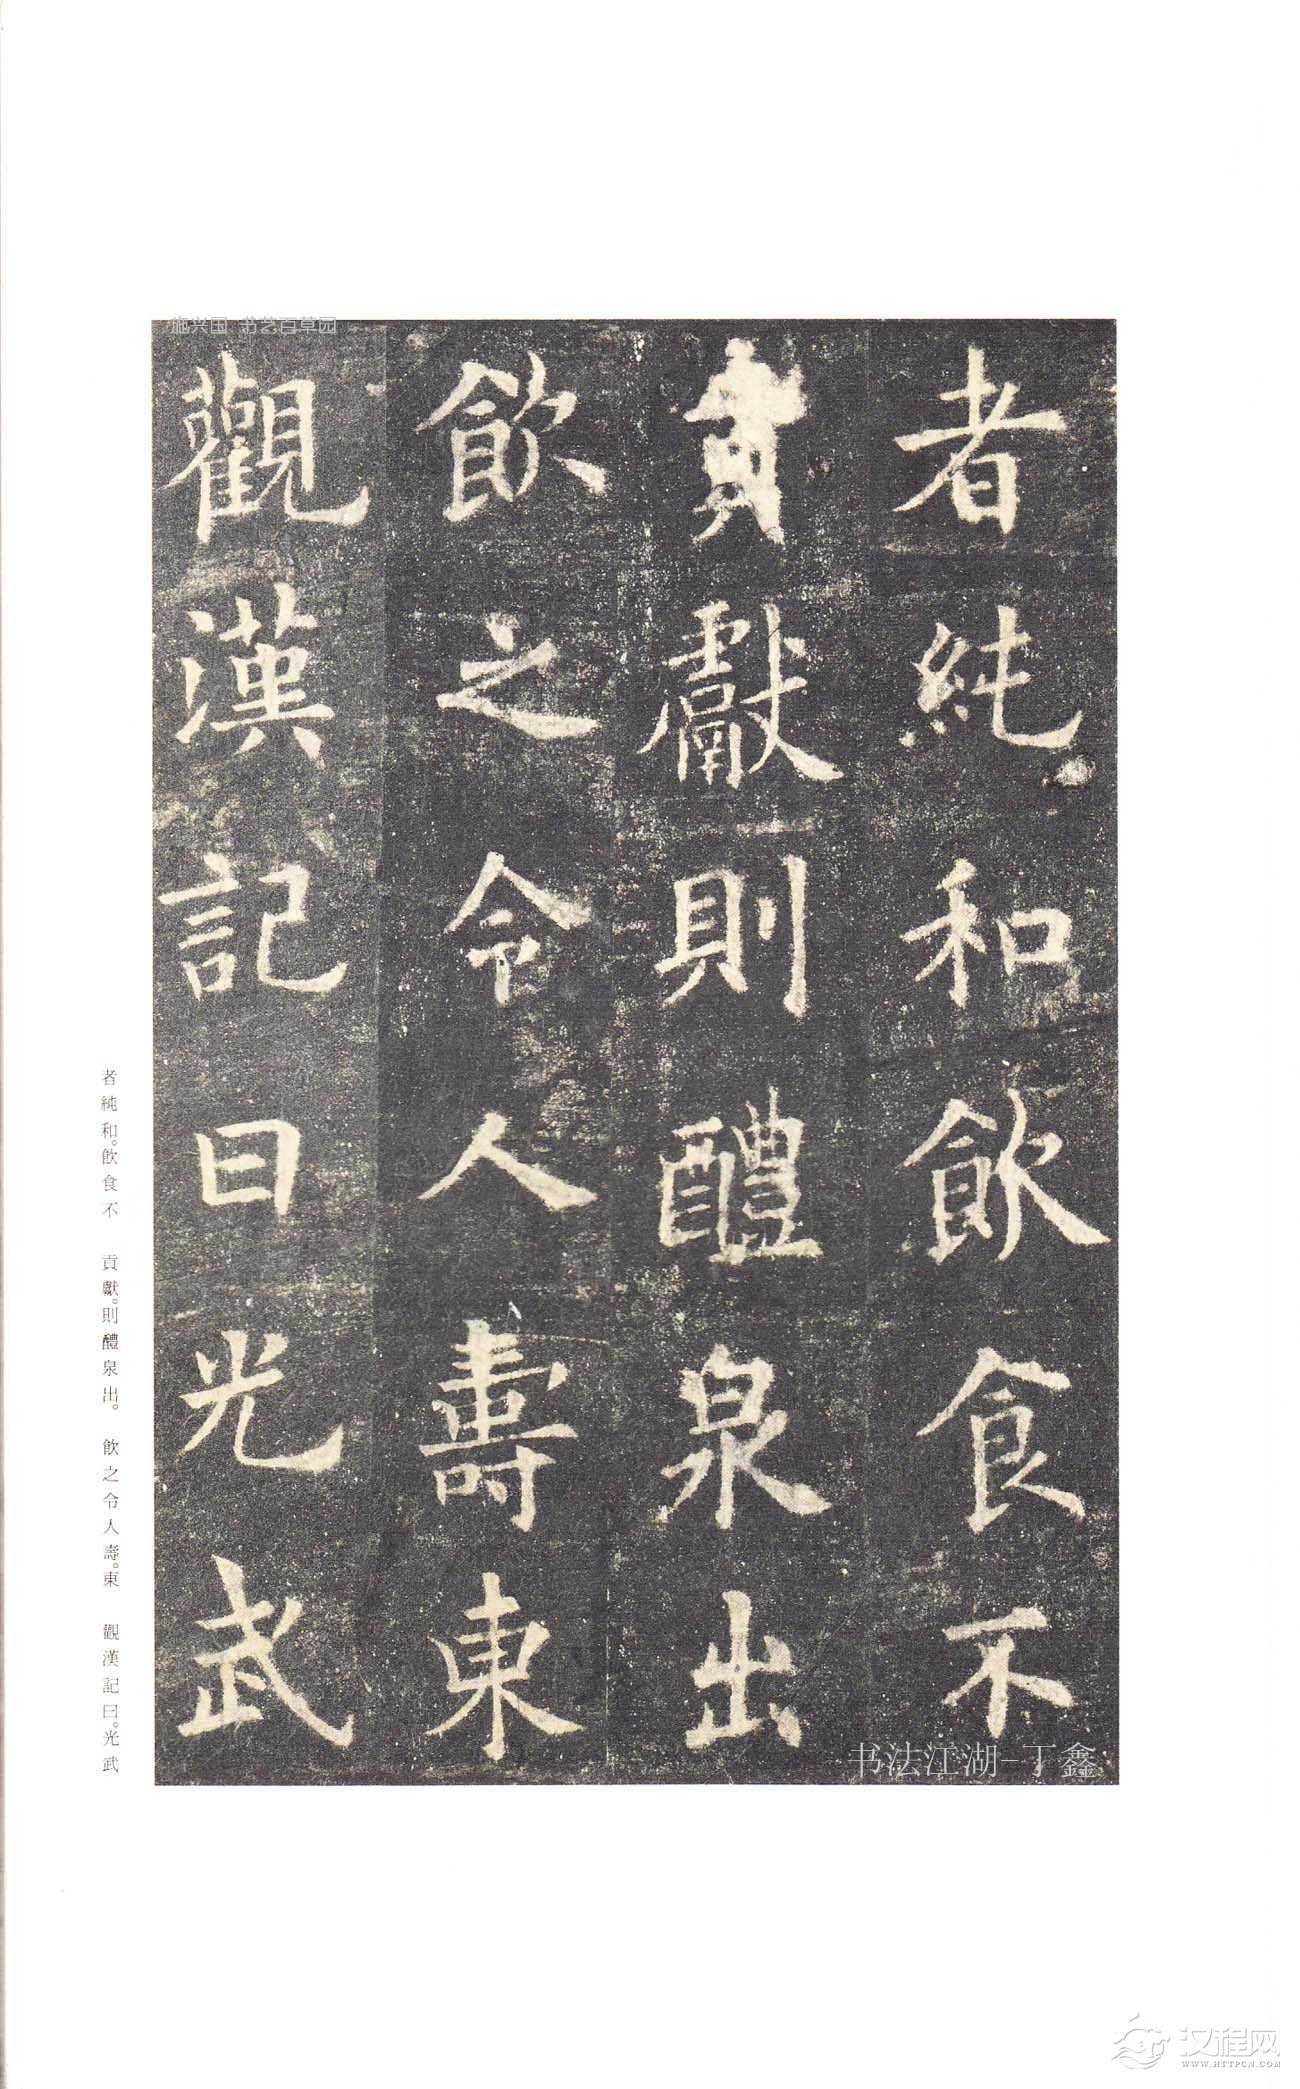 施兴国 书艺百草园
者純和飲食不
貢獻則醴泉出
飲之令人壽東
觀漢記曰光武
者純和。飲食不 貢獻。則醴泉出。 飲之令人壽。東 觀漢記曰。光武
书法江湖-丁鑫
汉程网
WWW.HTTPCN.COM